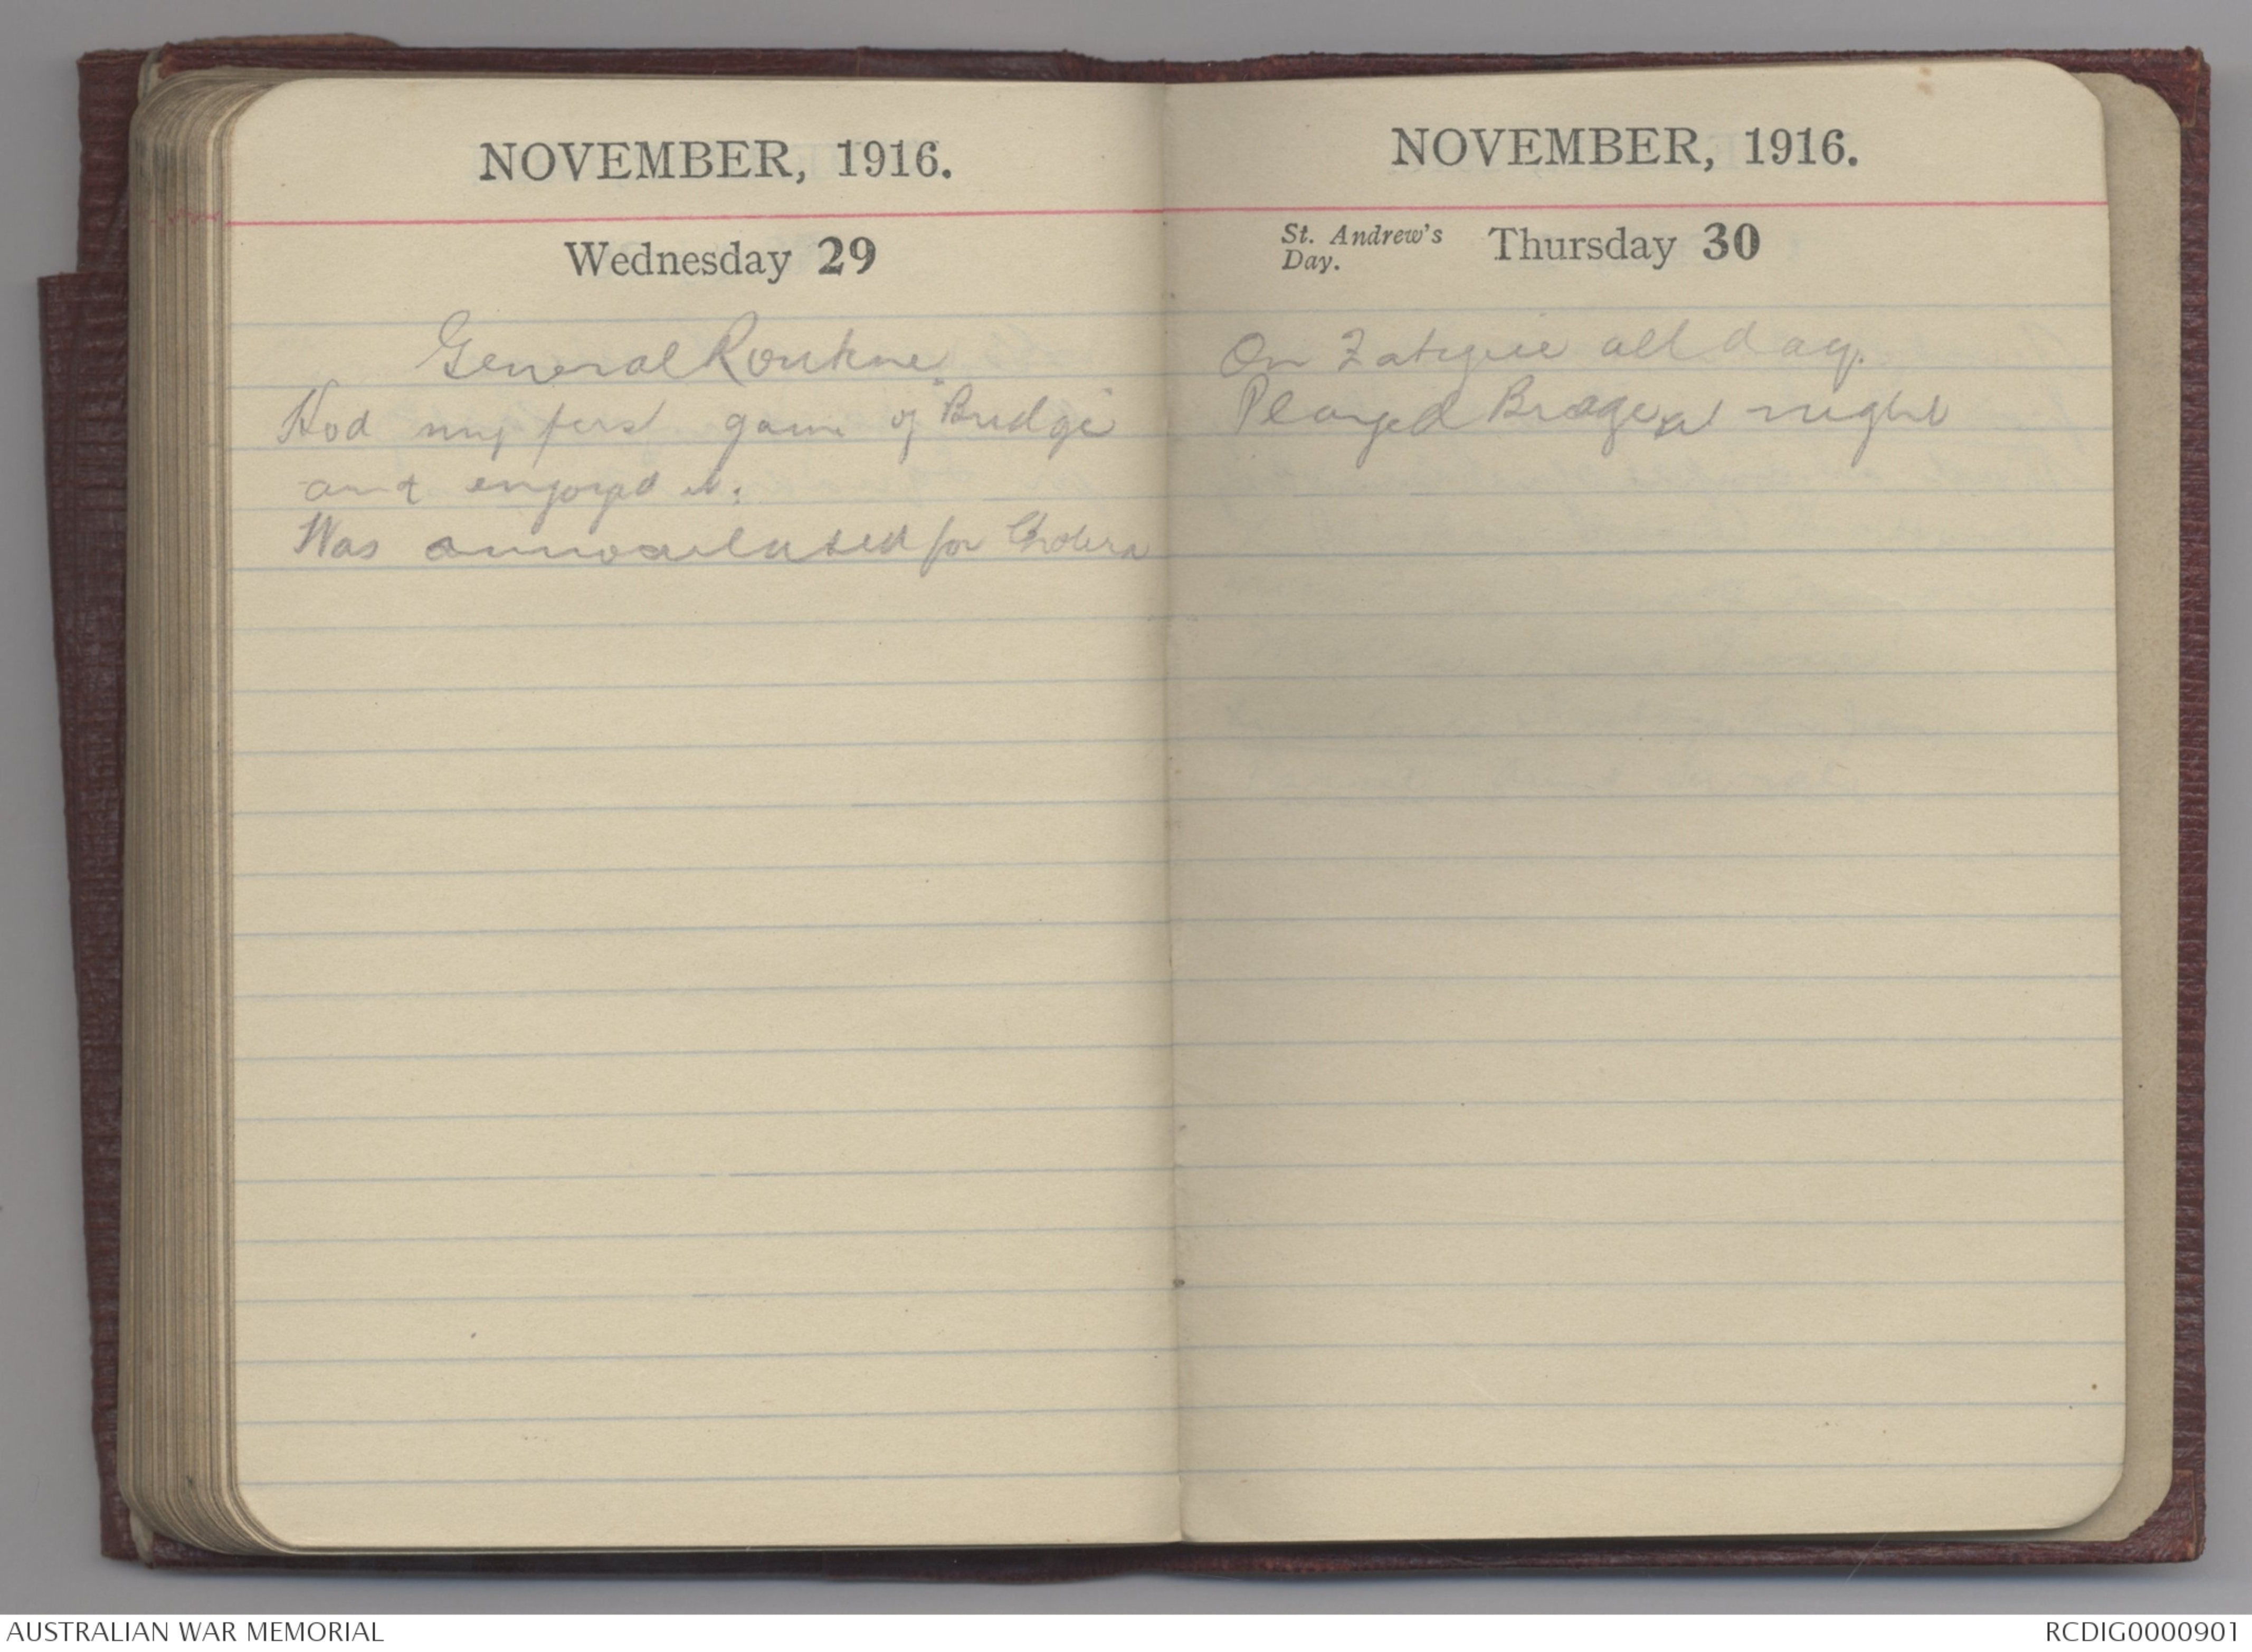 NOVEMBER, 1916.
Wednesday 29
General Routine
Had my first game of "Bridge"
and enjoyed it.
Was annoculated for Cholera
NOVEMBER, 1916.
St. Andrew's Day. Thursday 30
On Fatigue all day.
Played Bridge at night
AUSTRALIAN WAR MEMORIAL
RCDIG0000901